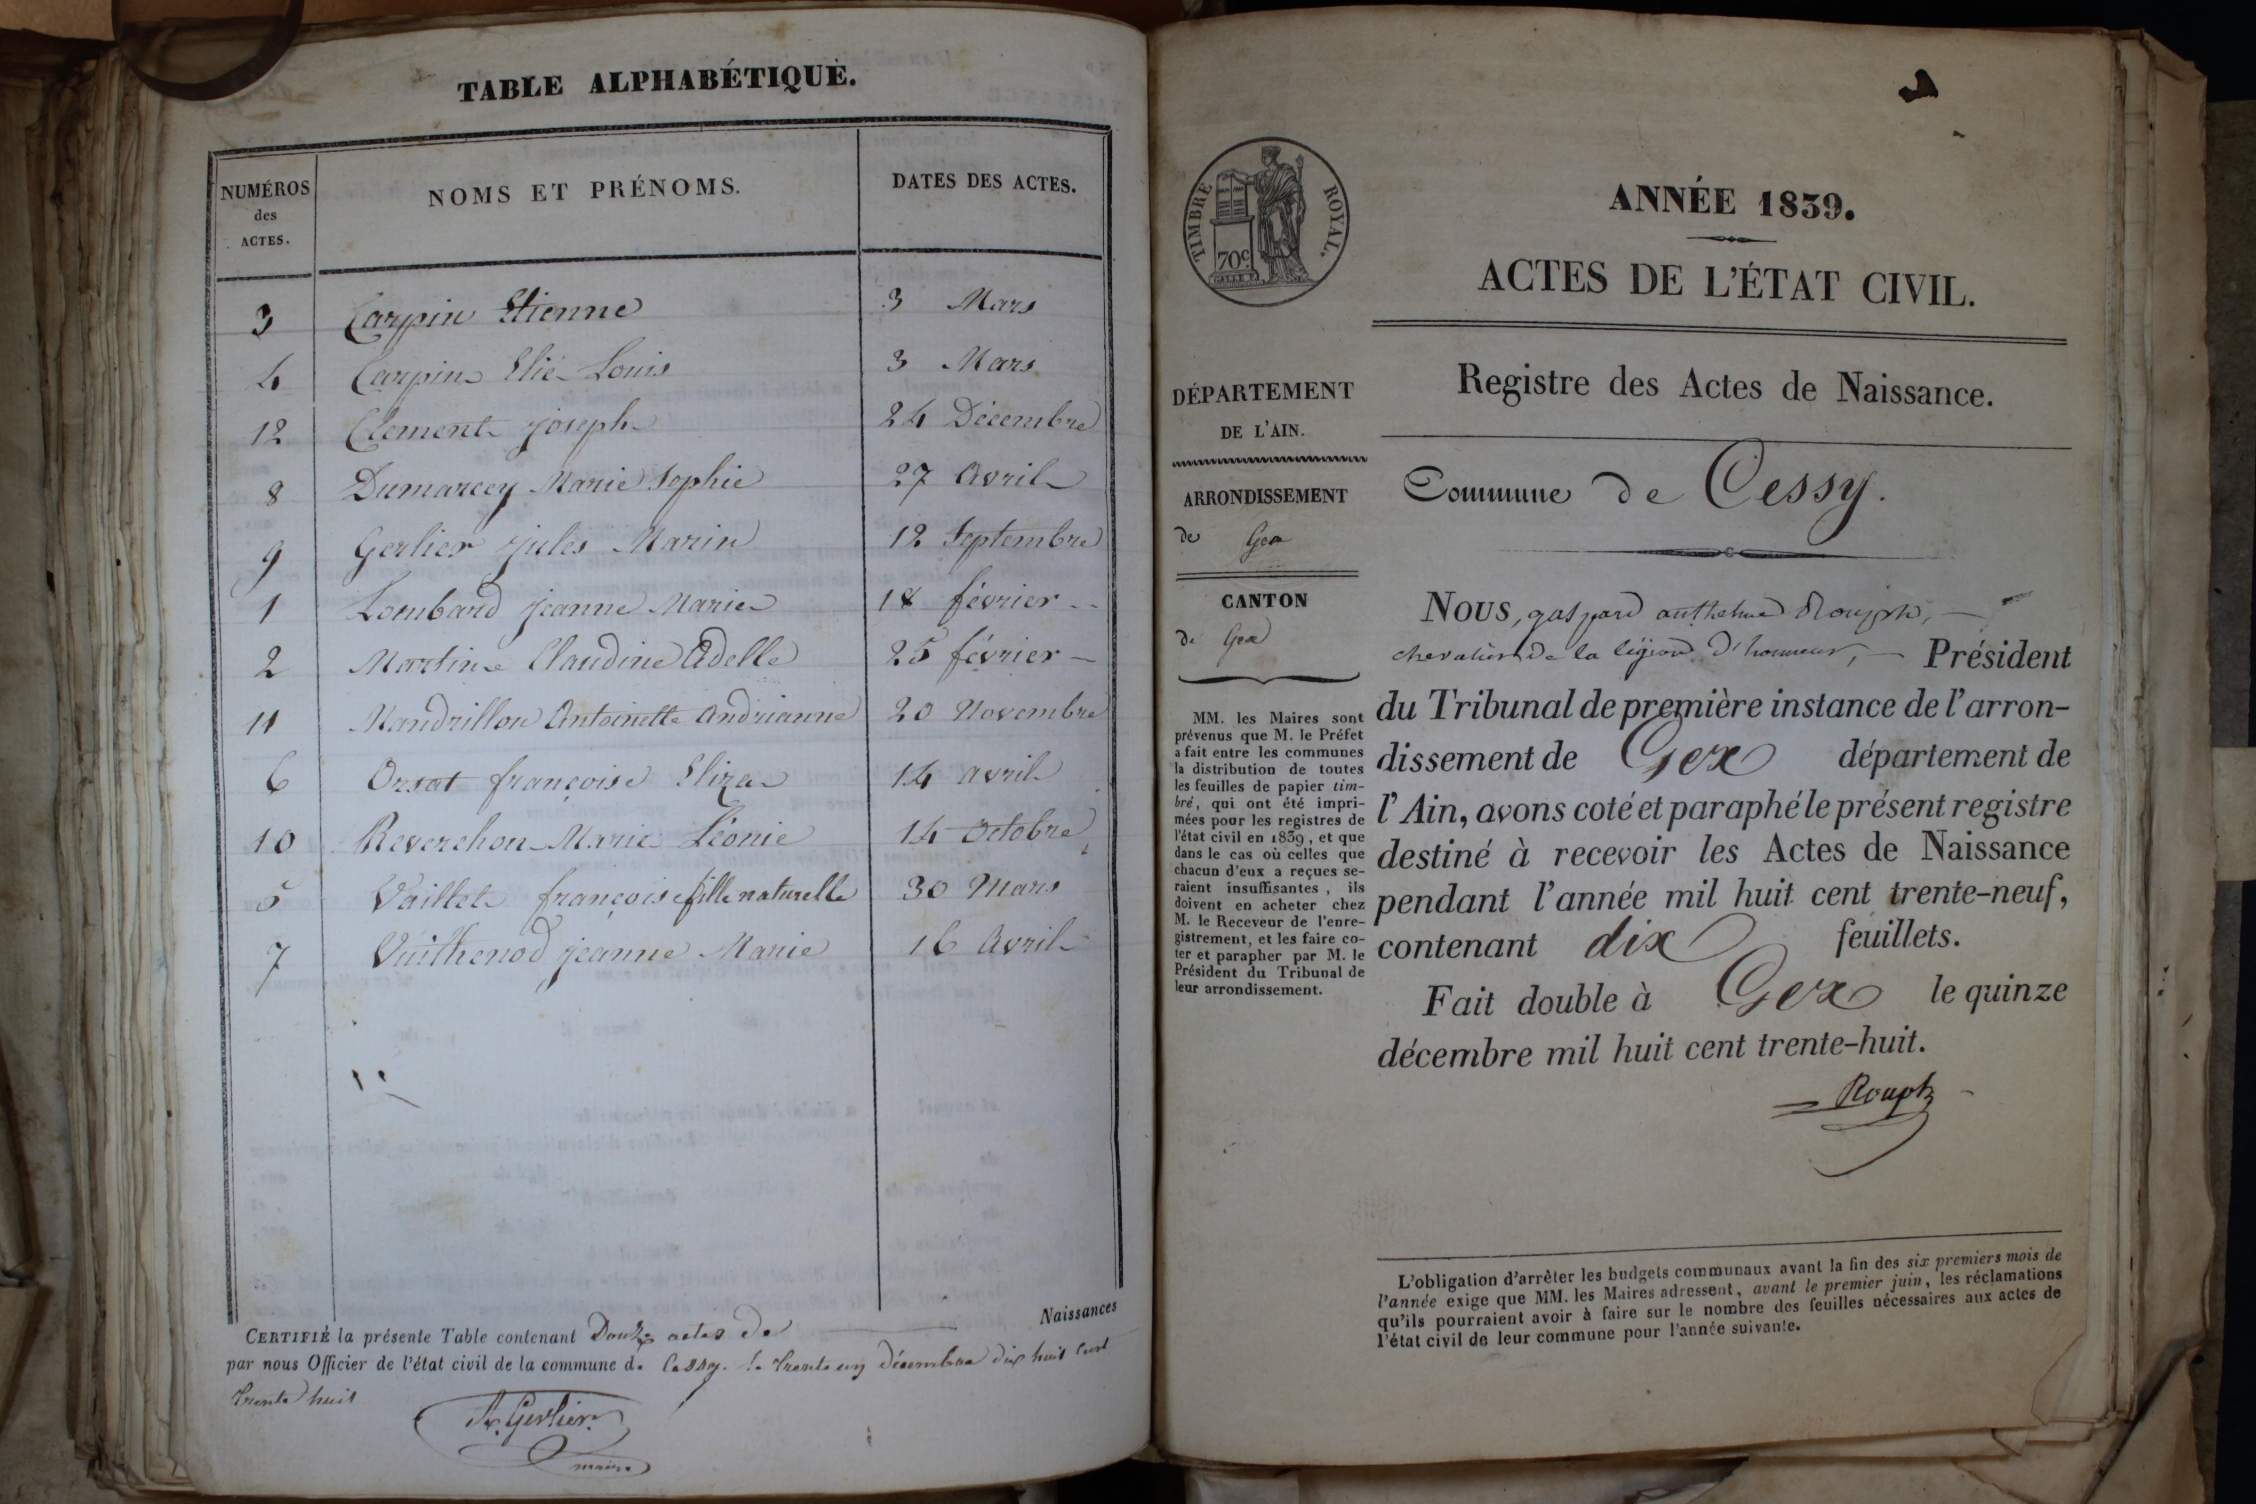 TABLE ALPHABÉTIQUE.
NUMÉROS des ACTES. NOMS ET PRÉNOMS. DATES DES ACTES.
3 Carpin Etienne 3 Mars
4 Carpin Elie Louis 3 Mars
12 Clement joseph 24 Décembre
8 Dumarcey Marie Sophie 27 Avril
9 Gerlier jules Marin 12 Septembre
1 Lombard jeanne Marie 18 février
2 Martin Claudine Adelle 25 février
11 Mandrillon Antoinette Andrianne 20 Novembre
6 Orsat françoise Eliza 14 avril
10 Reverchon Marie Léonie 14 Octobre
5 Vaillet françoise fille naturelle 30 Mars
7 Vuithenod jeanne Marie 16 Avril
Naissances
CERTIFIÉ la présente Table contenant Douze actes de
par nous Officier de l'état civil de la commune de Cessy. le trente un Décembre dix huit cent
trente huit
Gerlier
maire
TIMBRE ROYAL.
70c.
ANNÉE 1839.
ACTES DE L'ÉTAT CIVIL.
Registre des Actes de Naissance.
DÉPARTEMENT
DE L'AIN.
ARRONDISSEMENT
de Gex
CANTON
de Gex
MM. les Maires sont
prévenus que M. le Préfet
a fait entre les communes
la distribution de toutes
les feuilles de papier tim-
bré, qui ont été impri-
mées pour les registres de
l'état civil en 1839, et que
dans le cas où celles que
chacun d'eux a reçues se-
raient insuffisantes, ils
doivent en acheter chez
M. le Receveur de l'enre-
gistrement, et les faire co-
ter et parapher par M. le
Président du Tribunal de
leur arrondissement.
Commune de Cessy.
NOUS, gaspard anthelme Rouph,
chevalier de la légion d'honneur, Président
du Tribunal de première instance de l'arron-
dissement de Gex département de
l'Ain, avons coté et paraphé le présent registre
destiné à recevoir les Actes de Naissance
pendant l'année mil huit cent trente-neuf,
contenant dix feuillets.
Fait double à Gex le quinze
décembre mil huit cent trente-huit.
Rouph
L'obligation d'arrêter les budgets communaux avant la fin des six premiers mois de
l'année exige que MM. les Maires adressent, avant le premier juin, les réclamations
qu'ils pourraient avoir à faire sur le nombre des feuilles nécessaires aux actes de
l'état civil de leur commune pour l'année suivante.